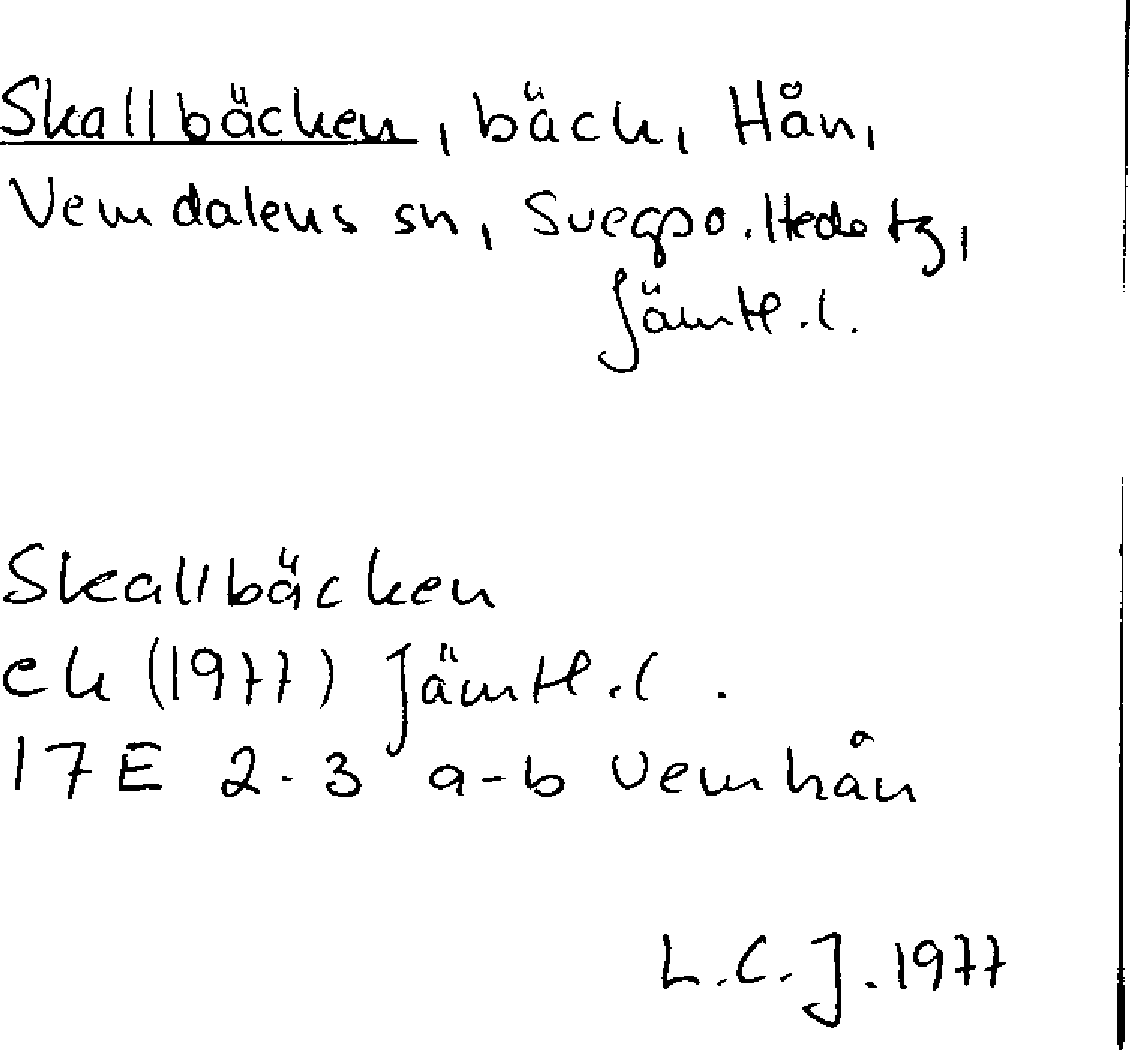 Skallbäcken, bäck, Hån,
Vemdalens sn, Svegs o. Hede tg,
Jämtl. l.
Skallbäcken
ek (1977) Jämtl. l.
17E 2-3 a-b Vemhån
L.C.J. 1977